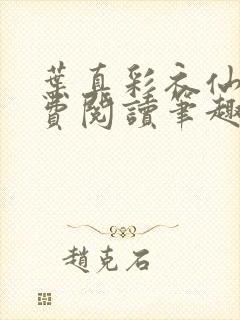 葉真彩衣仙
費閱讀筆趣
趙克石